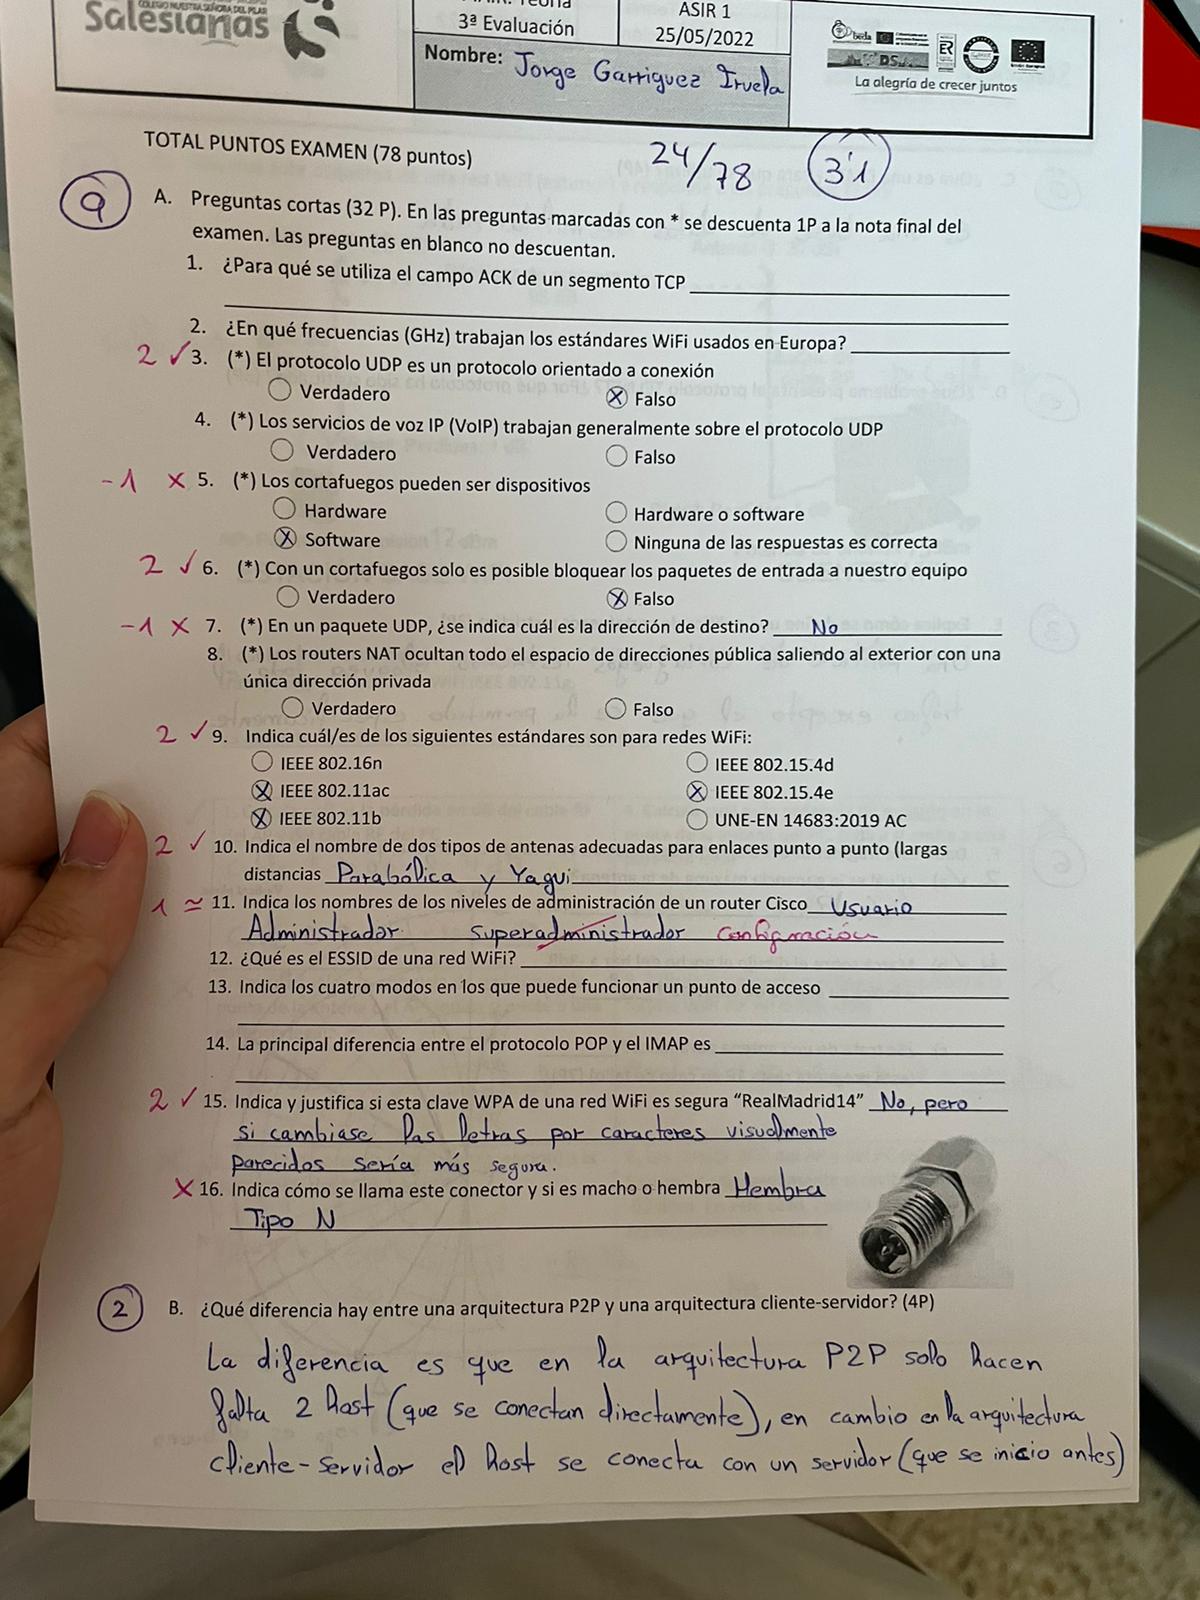 COLEGIO NUESTRA SEÑORA DEL PILAR
Salesianas
Teoría
3ª Evaluación
ASIR 1
25/05/2022
Nombre: Jorge Garriguez Iruela
beda
DS
ER
La alegría de crecer juntos
TOTAL PUNTOS EXAMEN (78 puntos)
24/78
3'1
9
A. Preguntas cortas (32 P). En las preguntas marcadas con * se descuenta 1P a la nota final del
examen. Las preguntas en blanco no descuentan.
1. ¿Para qué se utiliza el campo ACK de un segmento TCP
2. ¿En qué frecuencias (GHz) trabajan los estándares WiFi usados en Europa?
2 ✓ 3. (*) El protocolo UDP es un protocolo orientado a conexión
Verdadero X Falso
4. (*) Los servicios de voz IP (VoIP) trabajan generalmente sobre el protocolo UDP
Verdadero Falso
-1 X 5. (*) Los cortafuegos pueden ser dispositivos
Hardware Hardware o software
X Software Ninguna de las respuestas es correcta
2 ✓ 6. (*) Con un cortafuegos solo es posible bloquear los paquetes de entrada a nuestro equipo
Verdadero X Falso
-1 X 7. (*) En un paquete UDP, ¿se indica cuál es la dirección de destino? No
8. (*) Los routers NAT ocultan todo el espacio de direcciones pública saliendo al exterior con una
única dirección privada
Verdadero Falso
2 ✓ 9. Indica cuál/es de los siguientes estándares son para redes WiFi:
IEEE 802.16n IEEE 802.15.4d
X IEEE 802.11ac X IEEE 802.15.4e
X IEEE 802.11b UNE-EN 14683:2019 AC
2 ✓ 10. Indica el nombre de dos tipos de antenas adecuadas para enlaces punto a punto (largas
distancias Parabólica y Yagui
1 ≃ 11. Indica los nombres de los niveles de administración de un router Cisco Usuario
Administrador superadministrador Configuración
12. ¿Qué es el ESSID de una red WiFi?
13. Indica los cuatro modos en los que puede funcionar un punto de acceso
14. La principal diferencia entre el protocolo POP y el IMAP es
2 ✓ 15. Indica y justifica si esta clave WPA de una red WiFi es segura "RealMadrid14" No, pero
si cambiase las letras por caracteres visualmente
parecidos sería más segura.
X 16. Indica cómo se llama este conector y si es macho o hembra Hembra
Tipo N
2
B. ¿Qué diferencia hay entre una arquitectura P2P y una arquitectura cliente-servidor? (4P)
La diferencia es que en la arquitectura P2P solo hacen
falta 2 host (que se conectan directamente), en cambio en la arquitectura
cliente-servidor el host se conecta con un servidor (que se inicio antes)